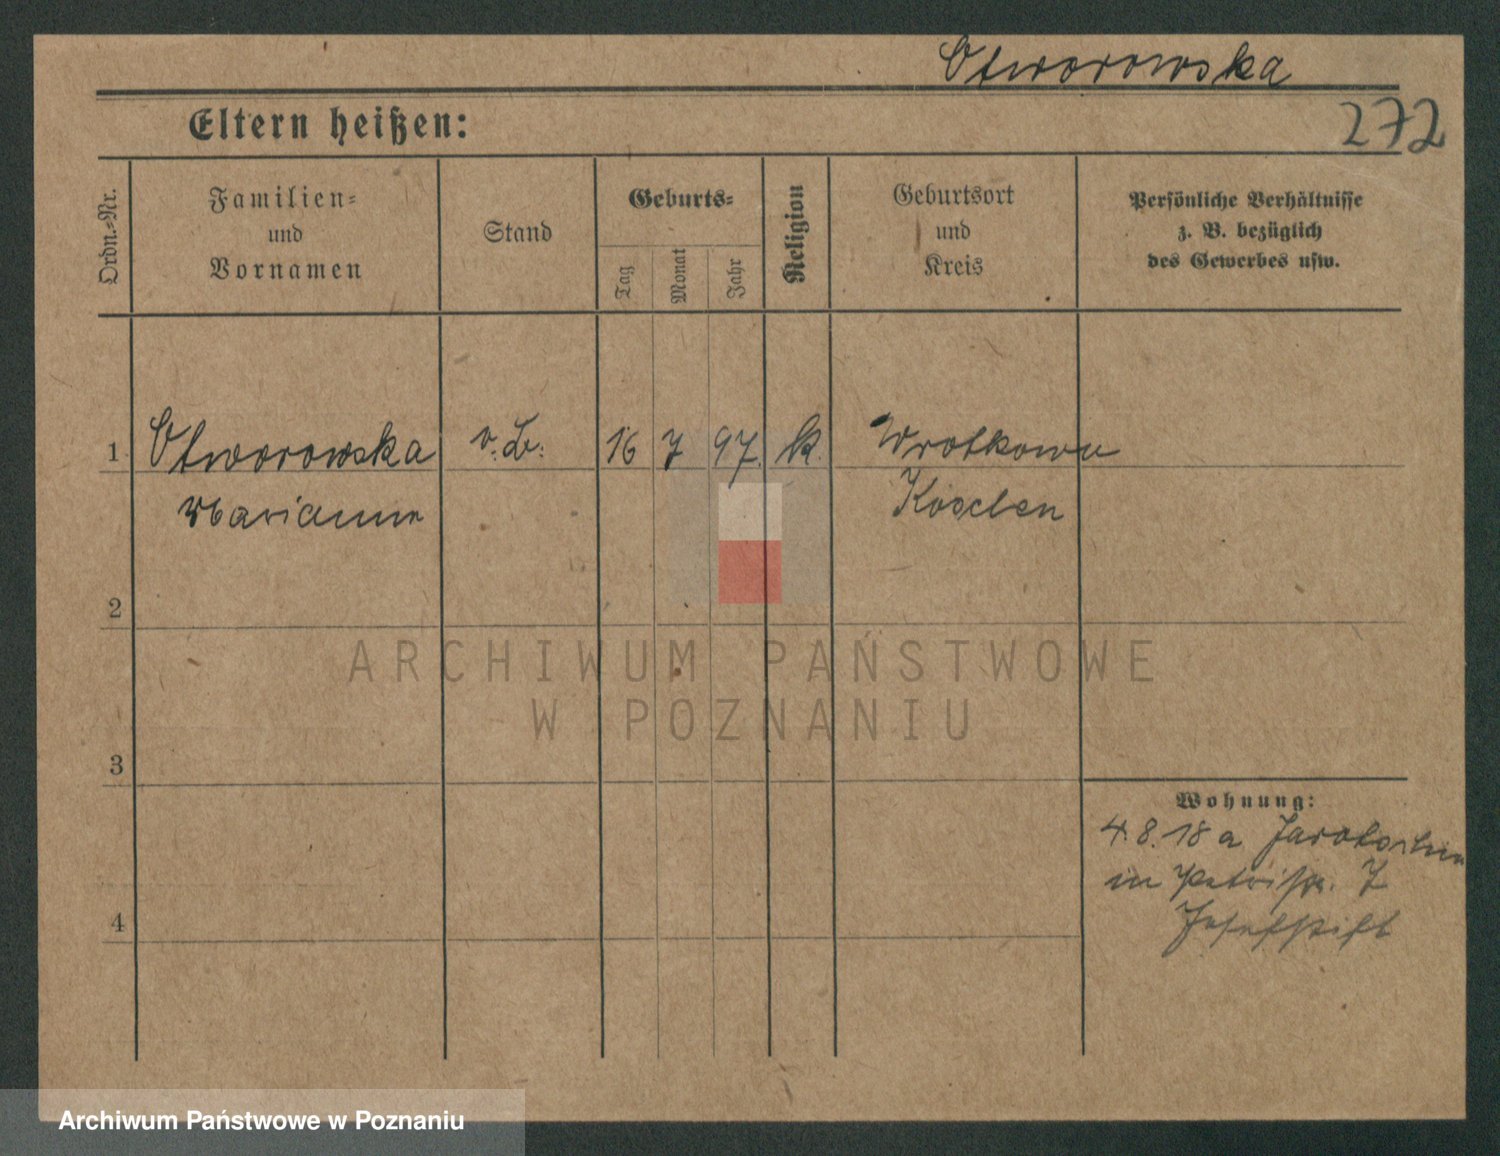 Otworowska
Eltern heißen:
272
Ordn.-Nr.
Familien-
und
Vornamen
Stand
Geburts-
Tag
Monat
Jahr
Religion
Geburtsort
und
Kreis
Persönliche Verhältnisse
z. B. bezüglich
des Gewerbes usw.
1 Otworowska 16 7 97. k. Wrotkowu
Marianna
Koschen
2
ARCHIWUM PAŃSTWOWE
W POZNANIU
3
Wohnung:
4.8.18 a
in Petristr. 7
Josefstift
4
Archiwum Państwowe w Poznaniu